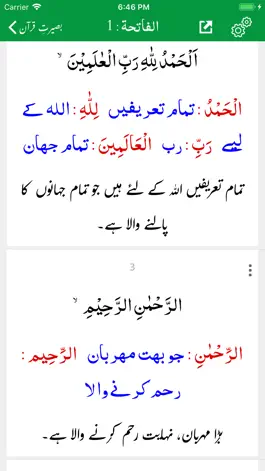 Carrier 6:46 PM
بصیرت قرآن الفاتحة : 1
اَلْحَمْدُ لِلّٰهِ رَبِّ الْعٰلَمِیْنَ ۙ
الْحَمْدُ : تمام تعریفیں لِلّٰهِ : الله کے
لیے رَبِّ : رب الْعَالَمِينَ : تمام جهان
تمام تعریفیں اللہ کے لئے ہیں جو تمام جہانوں کا
پالنے والا ہے۔
3
الرَّحْمٰنِ الرَّحِیْمِ ۙ
الرَّحْمٰنِ : جو بهت مهربان الرَّحِيم :
رحم کرنے والا
بڑا مہربان، نہایت رحم کرنے والا ہے۔